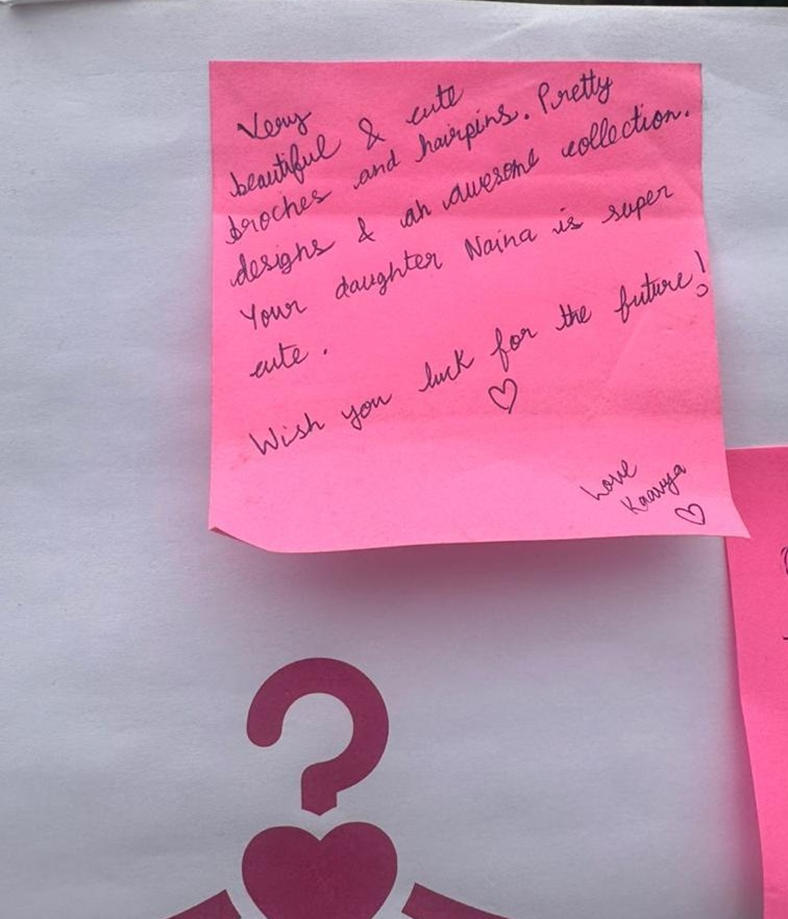 Very
beautiful & cute
broches and hairpins. Pretty
designs & an awesome collection.
Your daughter Naina is super
cute.
Wish you luck for the future!
♡
Love
Kaavya
♡